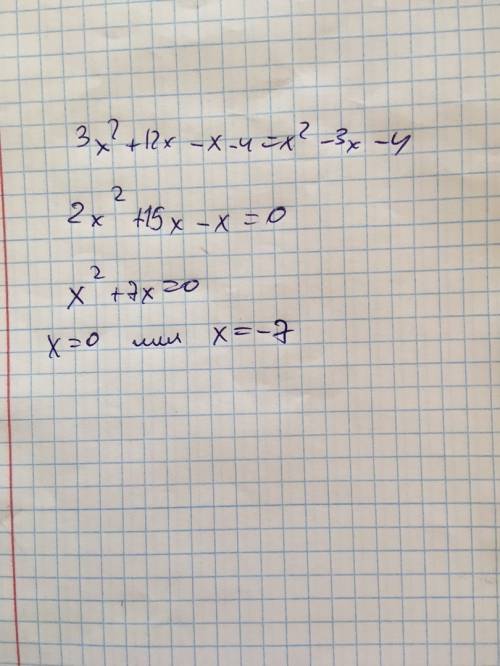 3x² + 12x - x - 4 = x² - 3x - 4
2x² + 15x - x = 0
x² + 7x = 0
x = 0 или x = -7